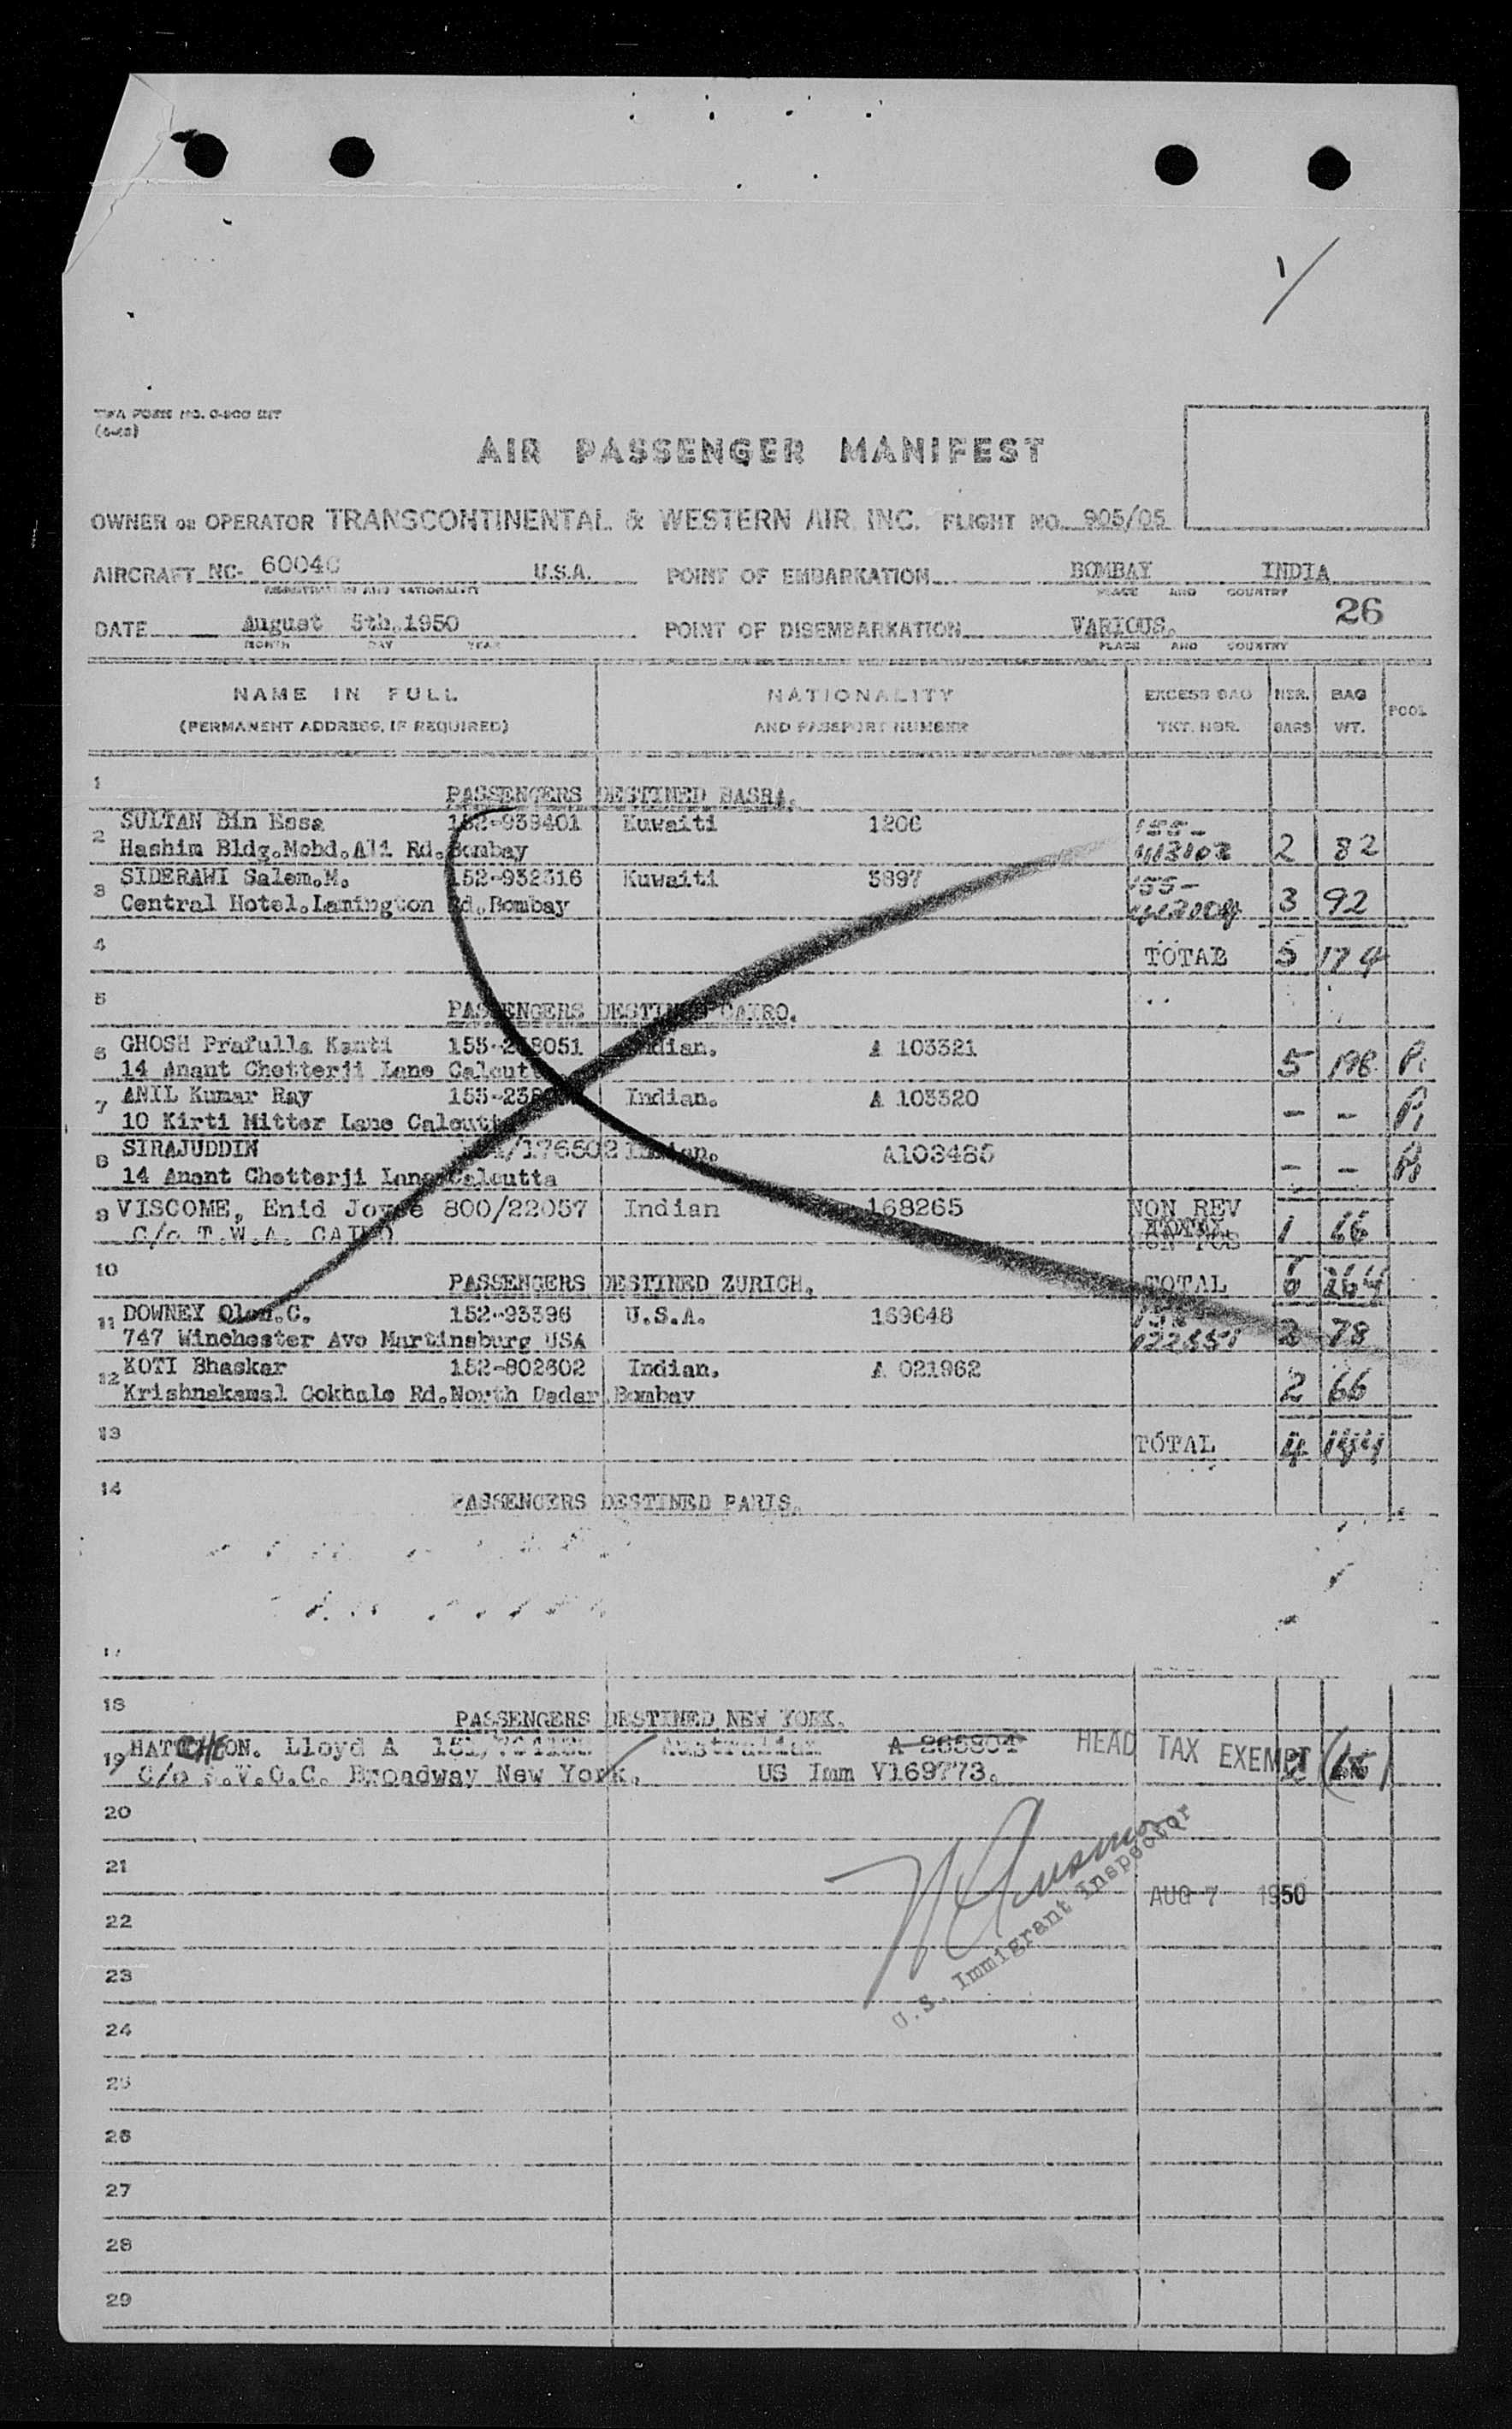 TWA FORM NO.
AIR PASSENGER MANIFEST
OWNER OR OPERATOR TRANSCONTINENTAL & WESTERN AIR, INC. FLIGHT NO. 905/05
AIRCRAFT NC- U.S.A. POINT OF EMBARKATION BOMBAY INDIA
REGISTRATION AND NATIONALITY PLACE AND COUNTRY
26
DATE August 5th.1950 POINT OF DISEMBARKATION VARIOUS.
MONTH DAY YEAR PLACE AND COUNTRY
NAME IN FULL NATIONALITY EXCESS BAG NBR. BAG POOL
(PERMANENT ADDRESS, IF REQUIRED) AND PASSPORT NUMBER TKT. NBR. BAGS WT.
1 PASSENGERS DESTINED BASRA.
2 SULTAN Bin Essa 152-939401 Kuwaiti 1206 155-
Hashim Bldg.Mohd.Ali Rd.Bombay 2 82
3 SIDERAWI Salem.M. 152-932316 Kuwaiti 3897 155-
Central Hotel.Lamington Rd.Bombay 3 92
4 TOTAL 5 174
5 PASSENGERS DESTINED CAIRO.
6 GHOSH Prafulla Kanti Indian. A 103321
14 Anant Chetterji Lane Calcutta 5 198 P1
7 ANIL Kumar Ray Indian. A 103320
10 Kirti Mitter Lane Calcutta - - P1
8 SIRAJUDDIN /176502 Indian. A103485
14 Anant Chetterji Lane Calcutta - - P1
9 VISCOME, Enid Joyce 800/22057 Indian 168265 NON REV
C/o T.W.A. CAIRO NON POS 1 66
10 PASSENGERS DESTINED ZURICH. TOTAL 6 264
11 DOWNEY Olen.C. 152-93396 U.S.A. 169648
747 Winchester Ave Martinsburg USA 2 78
12 KOTI Bhaskar 152-802602 Indian. A 021962
Krishnakamal Gokhale Rd.North Dadar.Bombay 2 66
13 TOTAL 4 144
14 PASSENGERS DESTINED PARIS.
17
18 PASSENGERS DESTINED NEW YORK.
19 HATCHEON. Lloyd A Australian A 265804 HEAD TAX EXEMPT 2
C/o S.V.O.C. Broadway New York. US Imm V169773.
20
21
U.S. Immigrant Inspector
AUG 7 1950
22
23
24
25
26
27
28
29